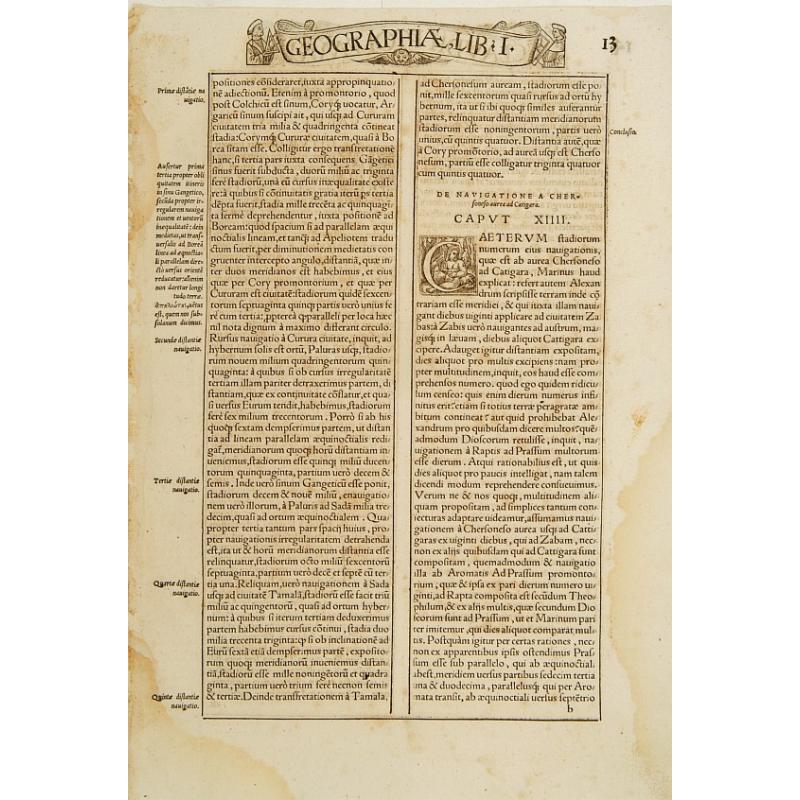 GEOGRAPHIÆ, LIB. I.
13
Primæ distãtiæ na
uigatio.
Aufertur prima
tertia propter obli
quitatem itineris
in sinu Gangetico,
secũda propter ir
regularem nauiga
tionem et uentorũ
inæqualitatẽ: dein
Secundæ distantiæ
nauigatio.
Tertiæ distantiæ
nauigatio.
Quartæ distantiæ
nauigatio.
Quintæ distantiæ
nauigatio.
positiones cõsideraret, iuxta appropinquatio
nẽ adiectionũ. Etenim à promontorio, quod
post Colchicũ est sinum, Coryq́ȝ uocatur, Ar
garicũ sinum suscipi ait, qui usq́ȝ ad Cururam
ciuitatem tria milia & quadringenta cõtineat
stadia: Corymq́ȝ Cururæ ciuitatem, quasi à Bo
rea sitam esse. Colligitur ergo transfretationẽ
hanc, si tertia pars iuxta consequens Gãgetici
sinus fuerit subducta, duorũ miliũ ac triginta
ferè stadiorũ, unà cũ cursus inæqualitate existe
re: à quibus si cõtinuitatis gratia iterũ ps tertia
dẽpta fuerit, stadia mille trecẽta ac quinquagi
ta fermè deprehendentur, iuxta positionẽ ad
Boream: quod spacium si ad parallelam æqui
noctialis lineam, et tanq́ȝ ad Apeliotem tradu
ctum fuerit, per diminutionem medietatis con
gruenter intercepto angulo, distantiã, quæ in
ter duos meridianos est habebimus, et eius
quæ per Cory promontorium, et quæ per
Cururam est ciuitatẽ: stadiorum quidẽ sexcen
torum septuaginta quinq́ȝ partis uerò unius fe
rè cum tertia: ppterea q̃ paralleli per loca hæc
nil nota dignum à maximo differat circulo.
Rursus nauigatio à Curura ciuitate, inquit, ad
hybernum solis est ortũ, Paluras usq́ȝ, stadio
rum nouem milium quadringentorum quin
quaginta: à quibus si ob cursus irregularitatẽ
tertiam illam pariter detraxerimus partem, di
stantiam, quæ ex continuitate cõflatur, et qua
si uersus Eurum tendit, habebimus, stadiorum
ferè sex milium trecentorum. Porrò si ab his
quoq́ȝ sextam dempserimus partem, ut distan
tia ad lineam parallelam æquinoctialis redi
gat, meridianorum quoq́ȝ horũ distantiam in
ueniemus, stadiorum esse quinq́ȝ miliũ ducen
torum quinquaginta, partium uerò decem &
semis. Inde uerò sinum Gangeticũ esse ponit,
stadiorum decem & nouẽ miliũ, enauigatio
nem uerò illorum, à Paluris ad Sadã milia tre
decim, quasi ad ortum æquinoctialem. Qua
propter tertia tantum pars spacij huius, pro
pter nauigationis irregularitatem detrahenda
est, ita ut & horũ meridianorum distantia esse
relinquatur, stadiorum octo miliũ sexcentorũ
septuaginta, partium uerò decẽ et septẽ cũ ter
tia una. Reliquam, uerò nauigationem à Sada
usq́ȝ ad ciuitatẽ Tamalã, stadiorũ esse facit triũ
miliũ ac quingentorũ, quasi ad ortum hyber
num: à quibus si iterum tertiam deduxerimus
partem habebimus cursus cõtinui, stadia duo
milia trecenta triginta: q̃ si ob inclinationẽ ad
Eurũ sextã etiã dempserimus partẽ, exposito
rum quoq́ȝ meridianorũ inueniemus distan
tiã, stadiorũ esse mille noningẽtorũ et quadra
ginta, partium uerò trium ferè necnon semis
& tertiæ. Deinde transfretationem à Tamala,
ad Chersonesum auream, stadiorum esse po
nit, mille sexcentorum quasi rursus ad ortũ hy
bernum, ita ut si ibi quoq́ȝ similes auferantur
partes, relinquatur distantiam meridianorum
stadiorum esse noningentorum, partis uerò
unius, cũ quintis quatuor. Distantia autẽ, quæ
à Cory promõtorio, ad aureã usq́ȝ est Cherso
nesum, partiũ esse colligatur triginta quatuor
cum quintis quatuor.
Conclusio.
DE NAVIGATIONE A CHER-
soneso aurea ad Catigara.
CAPVT XIIII.
CAETERVM stadiorum
numerum eius nauigationis,
quæ est ab aurea Chersoneso
ad Catigara, Marinus haud
explicat: refert autem Alexan
drum scripsisse terram inde cõ
trariam esse meridiei, & qui iuxta illam naui
gant diebus uiginti applicare ad ciuitatem Za
bas: à Zabis uerò nauigantes ad austrum, ma
gisq́ȝ in læuam, diebus aliquot Cattigara ex
opere. Adauget igitur distantiam expositam,
dies aliquot pro multis excipiens: nam pro
pter multitudinem, inquit, eos haud esse com
prehensos numero. quod ego quidem ridicu
lum censeo: quis enim dierum numerus infi
nitus erit: etiam si totius terræ peragratæ am
bitum contineat: aut quid prohibebat Ale
xandrum pro quibusdam dicere multos: quẽ
admodum Dioscorum retulisse, inquit, na
uigationem à Raptis ad Prassum multorum
esse dierum. Atqui rationabilius est, ut quis
dies aliquot pro paucis intelligat, nam talem
dicendi modum reprehendere consueuimus.
Verum ne & nos quoq́ȝ, multitudinem ali
quam propositam, ad simplices tantum con
iecturas adaptare uideamur, assumamus naui
gationem à Chersoneso aurea usq́ȝ ad Catti
garas ex uiginti diebus, qui ad Zabam, nec
non ex alijs quibusdam qui ad Cattigara sunt
compositam, quemadmodum & nauigatio
illa ab Aromatis Ad Prassum promonto
rium, quæ & ipsa ex pari dierum numero ui
ginti, ad Rapta composita est secũdum Theo
philum, & ex alijs multis, quæ secundum Dio
scorum sunt ad Prassum, ut et Marinum pari
ter imitemur, qui dies aliquot comparat mul
tis. Postquàm igitur per certas rationes, nec
non ex apparentibus ipsis ostendimus Pras
sum esse sub parallelo, qui ab æquinoctiali
abest, meridiem uersus partibus sedecim tertia
una & duodecima, parallelusq́ȝ qui per Aro
mata transit, ab æquinoctiali uersus septẽtrio
b